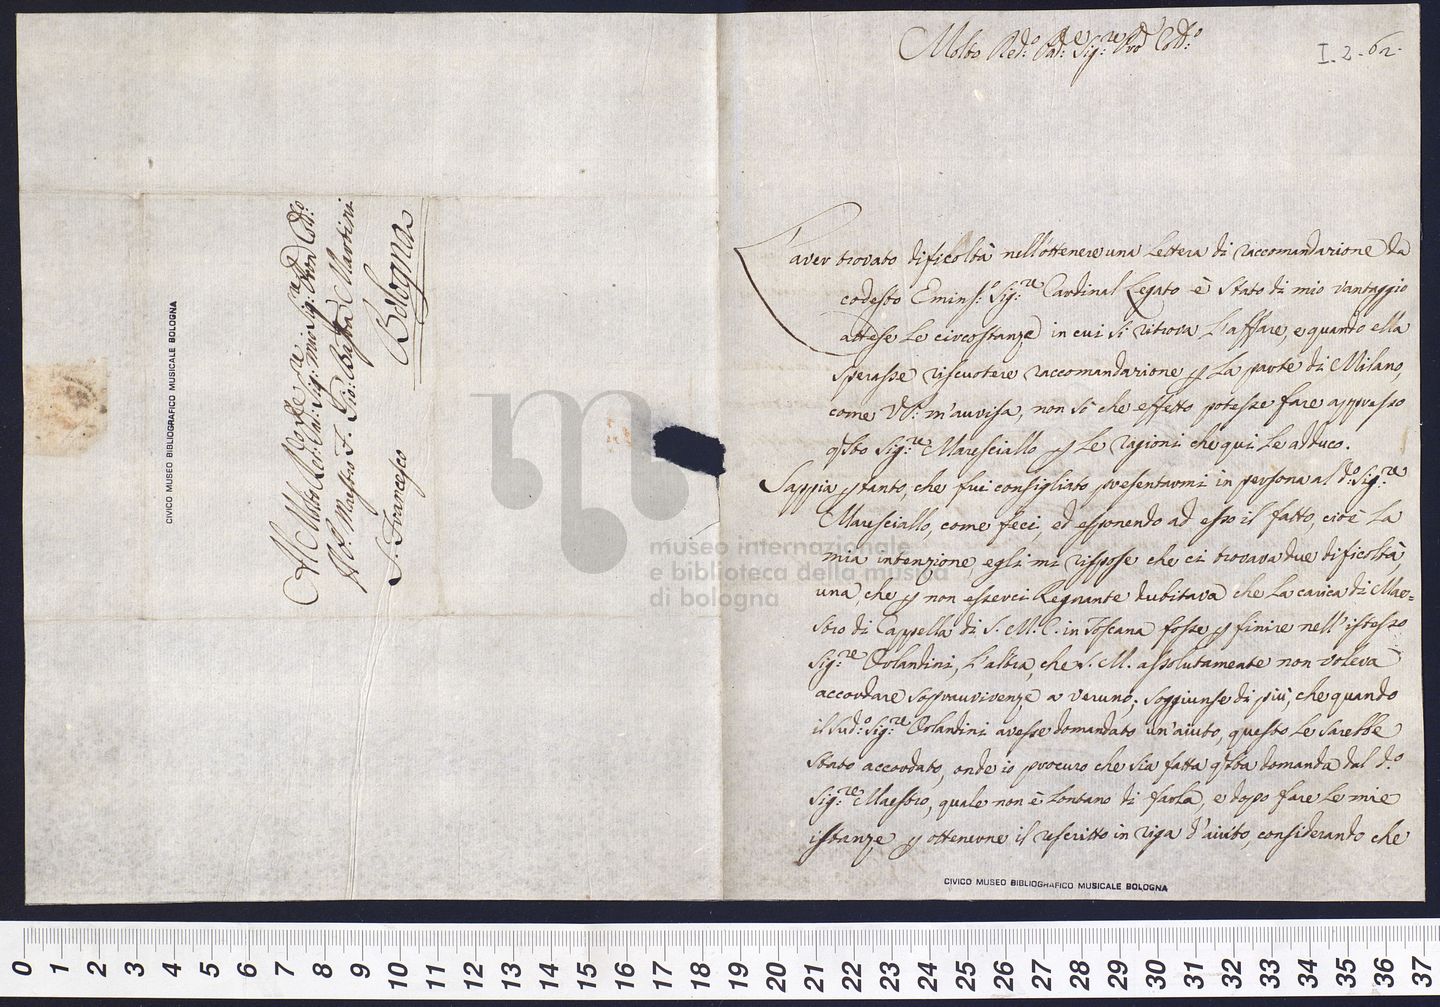 Al Molto Rev: Pad: Sig: mio Sig: Pron Coll:
Il P. Maestro F. Gio: Batta Martini
S. Francesco
Bologna
CIVICO MUSEO BIBLIOGRAFICO MUSICALE BOLOGNA
Molto Red:o Pad:e Sig:re Pro͠ Coll:o
I. 2. 62.
L'aver trovato dificoltà nell'ottenere una Lettera di raccomandazione da
codesto Emins:o Sig:re Cardinal Legato è stato di mio vantaggio
attese le circostanze in cui si ritrova l'affare, e quando ella
sperasse riscuotere raccomandazione p la parte di Milano,
come V.S. m'avvisa, non sò che effetto potesse fare appresso
qsto Sig:re Maresciallo p le ragioni che qui le adduco.
Sappia p tanto, che fui consigliato presentarmi in persona al d:o Sig:re
Maresciallo, come feci, ed esponendo ad esso il fatto, cioè la
mia intenzione, egli mi rispose che ci trovava due dificoltà,
una, che p non esserci Regnante dubitava che la carica di Mae=
stro di Cappella di S. M. C. in Toscana fosse p finire nell'istesso
Sig:re Orlandini, l'altra, che S. M. assolutamente non voleva
accordare sopravvivenze a veruno; soggiunse di più, che quando
il sud:o Sig:re Orlandini avesse domandato un'aiuto, questo le sarebbe
stato accordato, onde io procuro che sia fatta qsta domanda dal d:o
Sig:re Maestro, quale non è lontano di farla, e dopo fare le mie
istanze p ottenerne il rescritto in riga d'aiuto, considerando che
CIVICO MUSEO BIBLIOGRAFICO MUSICALE BOLOGNA
museo internazionale
e biblioteca della musica
di bologna
0 1 2 3 4 5 6 7 8 9 10 11 12 13 14 15 16 17 18 19 20 21 22 23 24 25 26 27 28 29 30 31 32 33 34 35 36 37